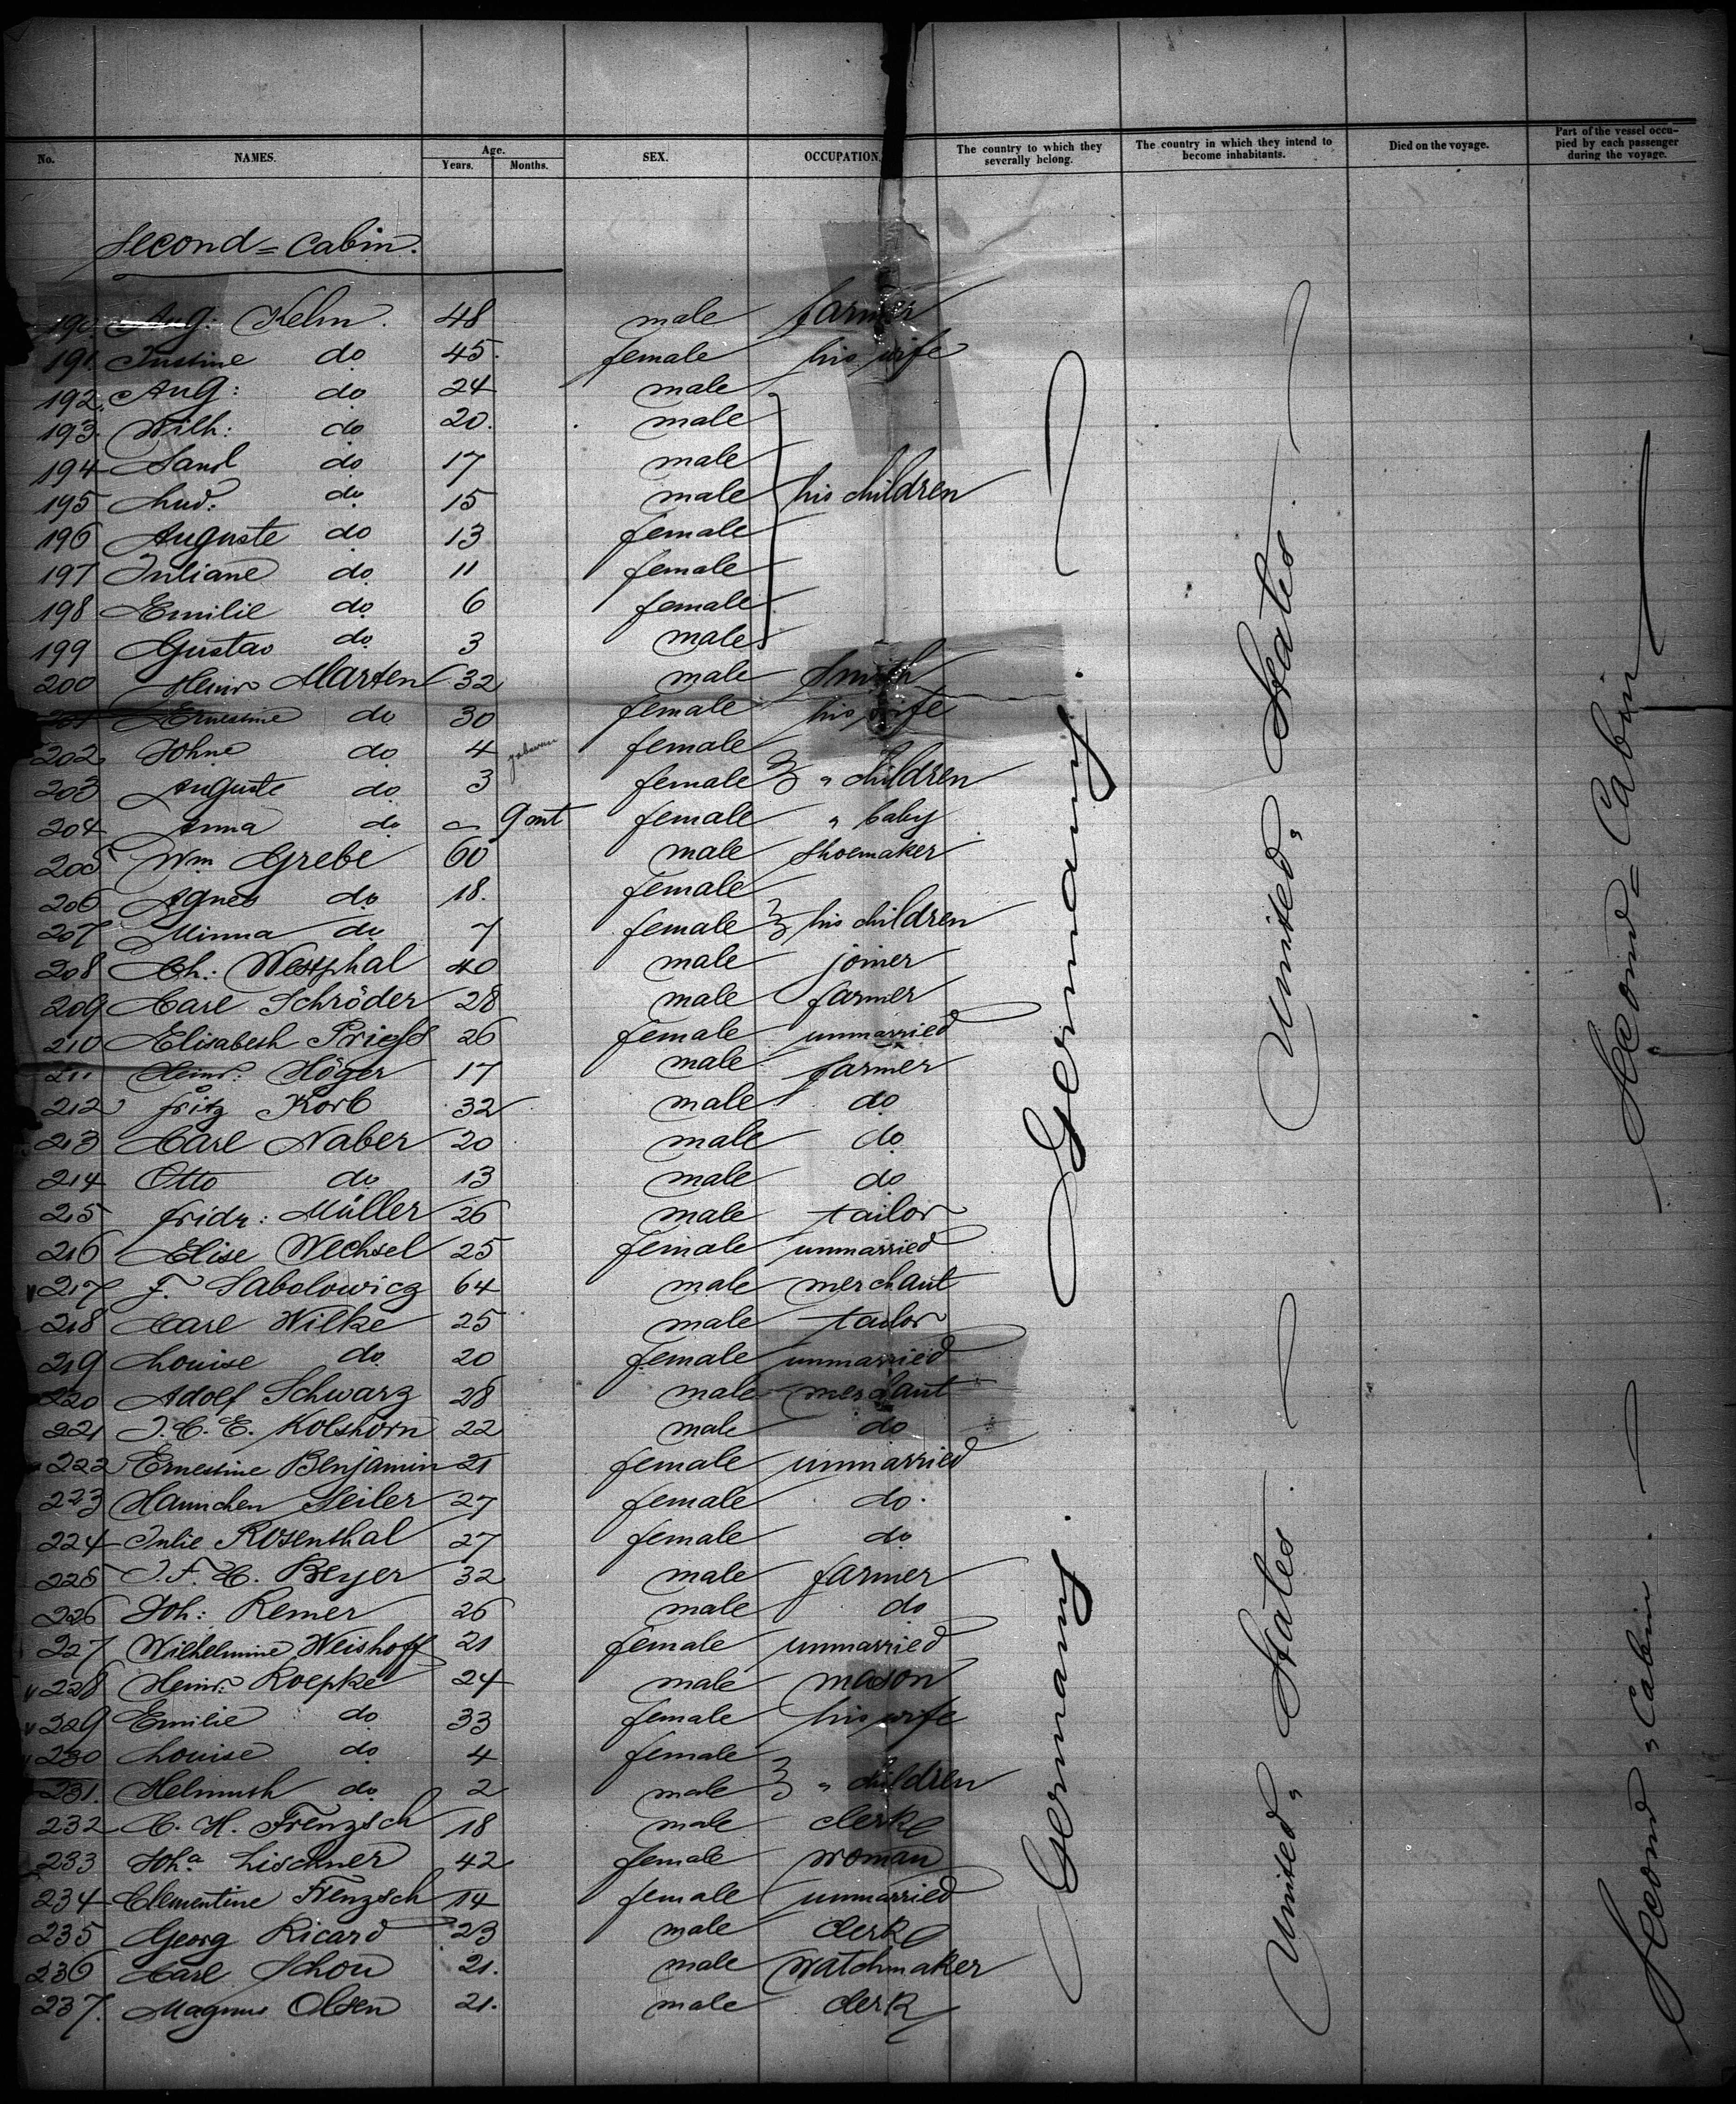 No. NAMES. Age. Years. Months. SEX. OCCUPATION. The country to which they severally belong. The country in which they intend to become inhabitants. Died on the voyage. Part of the vessel occupied by each passenger during the voyage.
Second=Cabin.
190. Aug: Kelm. 48 male farmer
191. Justine do 45. female his wife
192. Aug: do 24 male
193. Wilh: do 20. male
194 Saml do 17 male
195 Lud: do 15 male his children
196 Auguste do 13 female
197 Juliane do 11 female
198 Emilie do 6 female
199 Gustav do 3 male
200 Heinr Marten 32 male Smith
201 Ernestine do 30 female his wife
202 Johne do 4 female
203 Auguste do 3 female " children
204 Anna do 9 mt female " baby
205 Wm Grebe 60 male shoemaker
206 Agnes do 18. female
207 Minna do 7 female his children
208 Ch: Westphal 40 male joiner
209 Carl Schröder 28 male farmer
210 Elisabeth Priess 26 female unmarried
211 Heinr: Höger 17 male farmer
212 Fritz Korb 32 male do
213 Carl Naber 20 male do
214 Otto do 13 male do
215 Fridr: Müller 26 male tailor
216 Elise Wechsel 25 female unmarried
217 F. Sabolowicz 64 male merchant
218 Carl Wilke 25 male tailor
219 Louise do 20 female unmarried
220 Adolf Schwarz 28 male merchant
221 J. C. E. Kolshorn 22 male do
222 Ernestine Benjamin 21 female unmarried
223 Hannchen Seiler 27 female do.
224 Julie Rosenthal 27 female do
225 J. F. H. Beyer 32 male farmer
226 Joh: Remer 26 male do
227 Wilhelmine Weishoff 21 female unmarried
228 Heinr: Roepke 24 male mason
229 Emilie do 33 female his wife
230 Louise do 4 female
231. Helmuth do 2 male " children
232 C. H. Frenzsch 18 male clerk
233 Joha Lischner 42 female woman
234 Clementine Frenzsch 14 female unmarried
235 Georg Ricard 23 male clerk
236 Carl Schou 21. male watchmaker
237. Magnus Olsen 21. male clerk
Germany.
United " States.
Second = Cabin
Germany.
United " States.
Second " Cabin.